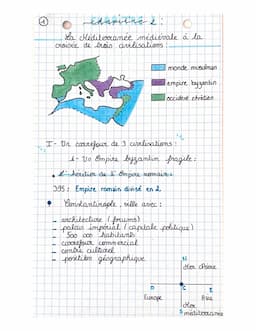 1
Chapitre 2 :
La Méditerranée médiévale à la
croisée de trois civilisations :
monde musulman
empire byzantin
occident chrétien
I - Un carrefour de 3 civilisations :
1 - Un Empire byzantin fragile :
L'héritier de l'Empire romain :
395 : Empire romain divisé en 2.
Constantinople, ville avec :
_ architecture (forums)
_ palais impérial (capitale politique)
_ 500 000 habitants
_ carrefour commercial
_ centre culturel
_ position géographique
N
Mer Noire
O
C
E
Europe
Asie
S
Mer
méditerranée